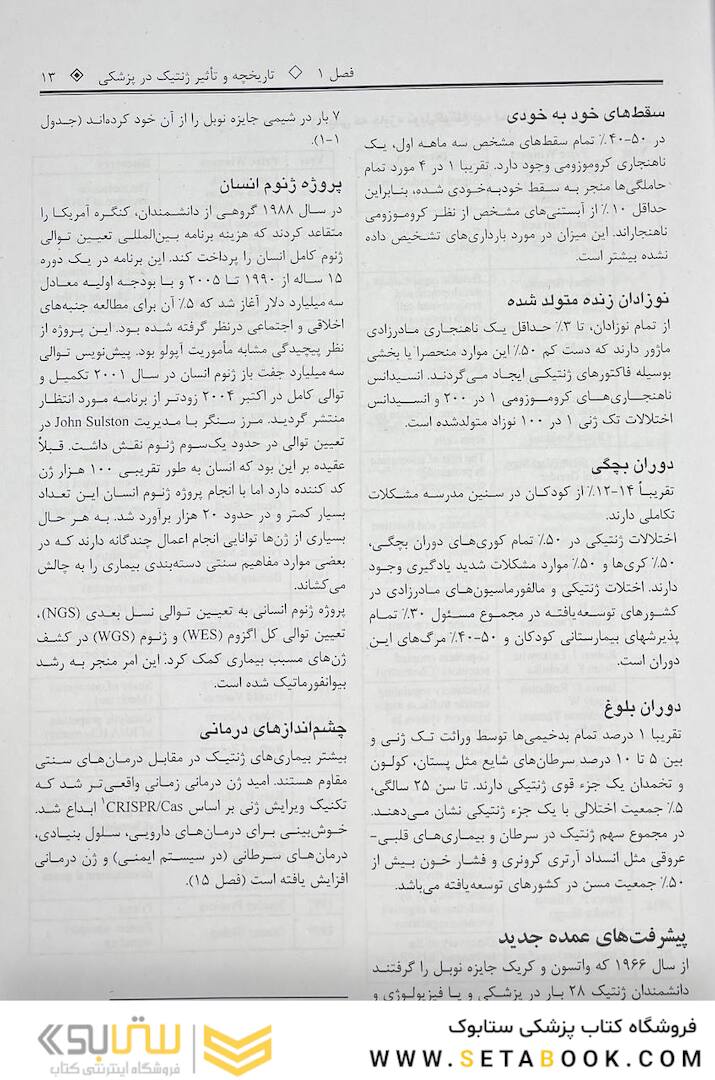 فصل ۱ ◇ تاریخچه و تأثیر ژنتیک در پزشکی ◈ ۱۳
سقط‌های خود به خودی
در ۵۰-۴۰٪ تمام سقط‌های مشخص سه ماهه اول، یک
ناهنجاری کروموزومی وجود دارد. تقریبا ۱ در ۴ مورد تمام
حاملگی‌ها منجر به سقط خودبه‌خودی شده، بنابراین
حداقل ۱۰٪ از آبستنی‌های مشخص از نظر کروموزومی
ناهنجاراند. این میزان در مورد بارداری‌های تشخیص داده
نشده بیشتر است.
نوزادان زنده متولد شده
از تمام نوزادان، تا ۳٪ حداقل یک ناهنجاری مادرزادی
ماژور دارند که دست کم ۵۰٪ این موارد منحصرا یا بخشی
بوسیله فاکتورهای ژنتیکی ایجاد می‌گردند. انسیدانس
ناهنجاری‌های کروموزومی ۱ در ۲۰۰ و انسیدانس
اختلالات تک ژنی ۱ در ۱۰۰ نوزاد متولدشده است.
دوران بچگی
تقریباً ۱۴-۱۲٪ از کودکان در سنین مدرسه مشکلات
تکاملی دارند.
اختلالات ژنتیکی در ۵۰٪ تمام کوری‌های دوران بچگی،
۵۰٪ کری‌ها و ۵۰٪ موارد مشکلات شدید یادگیری وجود
دارند. اختلات ژنتیکی و مالفورماسیون‌های مادرزادی در
کشورهای توسعه‌یافته در مجموع مسئول ۳۰٪ تمام
پذیرشهای بیمارستانی کودکان و ۵۰-۴۰٪ مرگ‌های این
دوران است.
دوران بلوغ
تقریبا ۱ درصد تمام بدخیمی‌ها توسط وراثت تک ژنی و
بین ۵ تا ۱۰ درصد سرطان‌های شایع مثل پستان، کولون
و تخمدان یک جزء قوی ژنتیکی دارند. تا سن ۲۵ سالگی،
۵٪ جمعیت اختلالی با یک جزء ژنتیکی نشان می‌دهند.
در مجموع سهم ژنتیک در سرطان و بیماری‌های قلبی-
عروقی مثل انسداد آرتری کرونری و فشار خون بیش از
۵۰٪ جمعیت مسن در کشورهای توسعه‌یافته می‌باشد.
پیشرفت‌های عمده جدید
از سال ۱۹۶۶ که واتسون و کریک جایزه نوبل را گرفتند
دانشمندان ژنتیک ۲۸ بار در پزشکی و یا فیزیولوژی و
۷ بار در شیمی جایزه نوبل را از آن خود کرده‌اند (جدول
۱-۱).
پروژه ژنوم انسان
در سال ۱۹۸۸ گروهی از دانشمندان، کنگره آمریکا را
متقاعد کردند که هزینه برنامه بین‌المللی تعیین توالی
ژنوم کامل انسان را پرداخت کند. این برنامه در یک دوره
۱۵ ساله از ۱۹۹۰ تا ۲۰۰۵ و با بودجه اولیه معادل
سه میلیارد دلار آغاز شد که ۵٪ آن برای مطالعه جنبه‌های
اخلاقی و اجتماعی درنظر گرفته شده بود. این پروژه از
نظر پیچیدگی مشابه مأموریت آپولو بود. پیش‌نویس توالی
سه میلیارد جفت باز ژنوم انسان در سال ۲۰۰۱ تکمیل و
توالی کامل در اکتبر ۲۰۰۴ زودتر از برنامه مورد انتظار
منتشر گردید. مرز سنگر با مدیریت John Sulston در
تعیین توالی در حدود یک‌سوم ژنوم نقش داشت. قبلاً
عقیده بر این بود که انسان به طور تقریبی ۱۰۰ هزار ژن
کد کننده دارد اما با انجام پروژه ژنوم انسان این تعداد
بسیار کمتر و در حدود ۲۰ هزار برآورد شد. به هر حال
بسیاری از ژن‌ها توانایی انجام اعمال چندگانه دارند که در
بعضی موارد مفاهیم سنتی دسته‌بندی بیماری را به چالش
می‌کشاند.
پروژه ژنوم انسانی به تعیین توالی نسل بعدی (NGS)،
تعیین توالی کل اگزوم (WES) و ژنوم (WGS) در کشف
ژن‌های مسبب بیماری کمک کرد. این امر منجر به رشد
بیوانفورماتیک شده است.
چشم‌اندازهای درمانی
بیشتر بیماری‌های ژنتیک در مقابل درمان‌های سنتی
مقاوم هستند. امید ژن درمانی زمانی واقعی‌تر شد که
تکنیک ویرایش ژنی بر اساس CRISPR/Cas۱ ابداع شد.
خوش‌بینی برای درمان‌های دارویی، سلول بنیادی،
درمان‌های سرطانی (در سیستم ایمنی) و ژن درمانی
افزایش یافته است (فصل ۱۵).
فروشگاه کتاب پزشکی ستابوک
WWW.SETABOOK.COM
ستابوک
فروشگاه اینترنتی کتاب